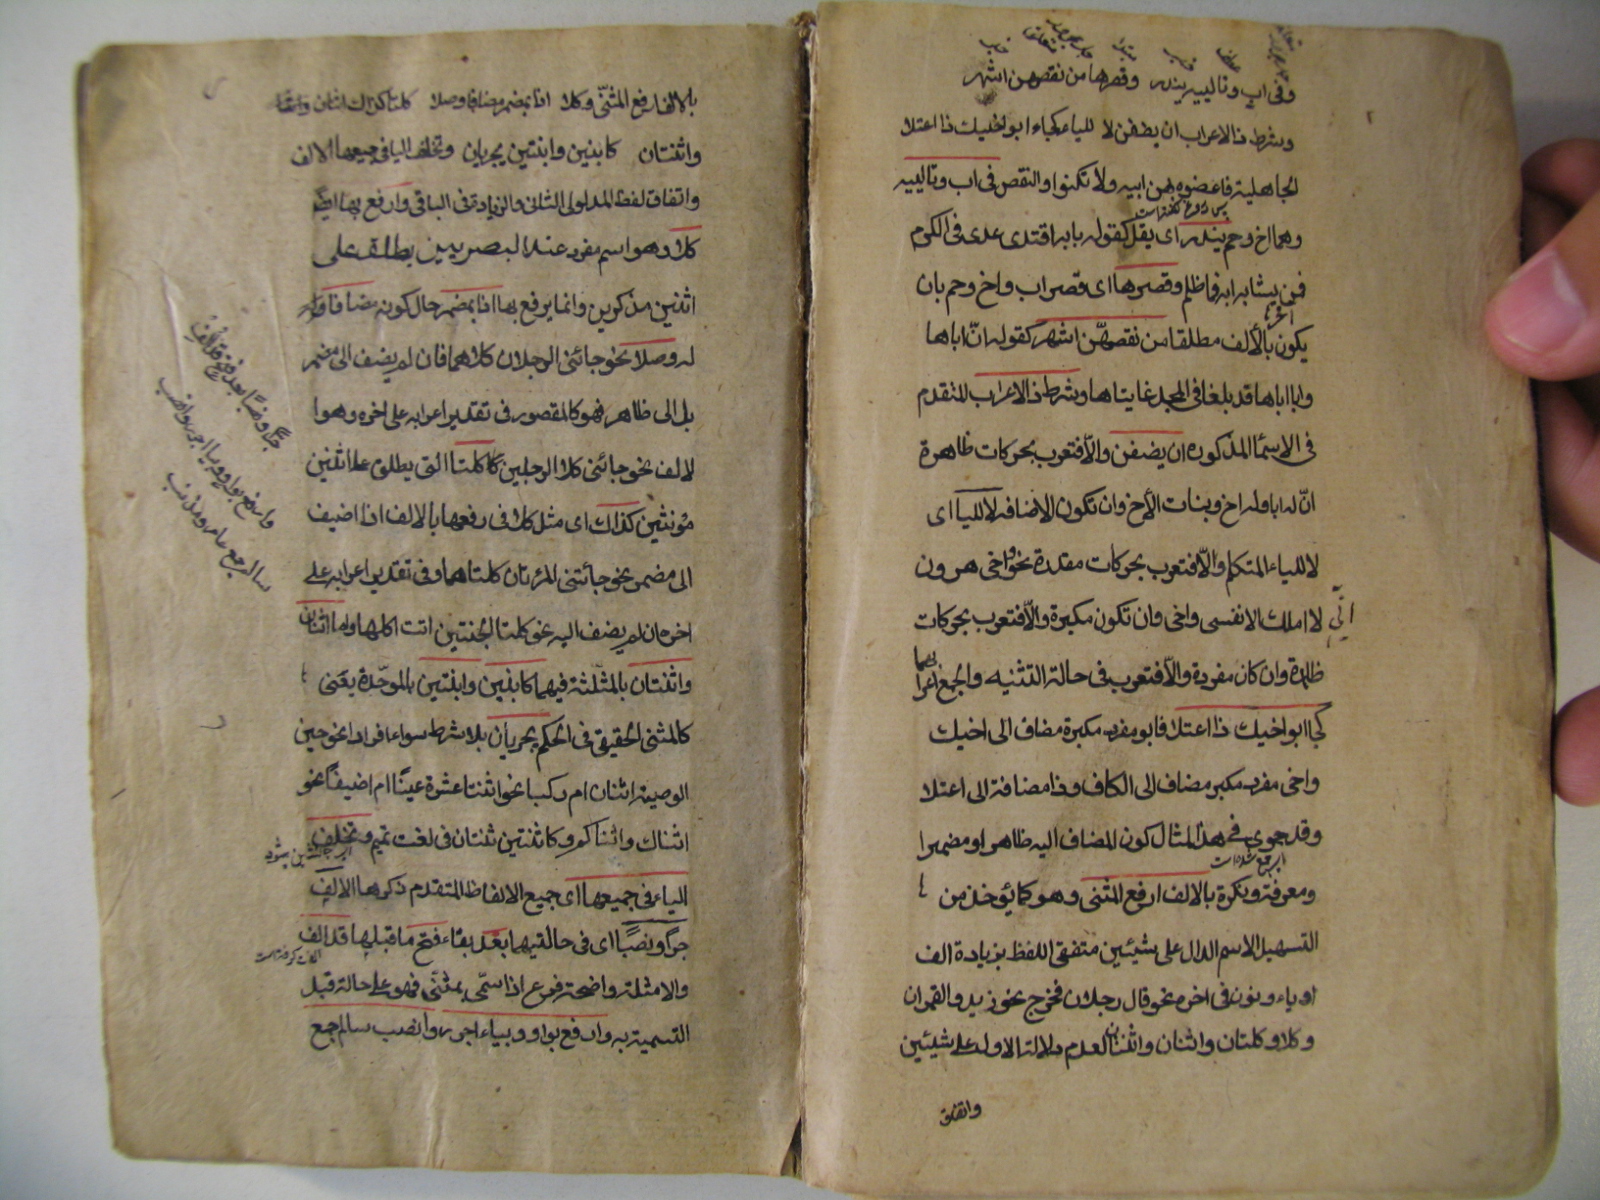 وفى اب وتالييه يندر وقصرها من نقصهن اشهر
وشرط ذالاعراب ان يضفن لا لليا كجاء ابو اخيك ذا اعتلا
الجاهلية فاعضوه بهن ابيه ولا تكنوا والنقص فى اب وتالييه
وهما اخ وحم يندر اى يقل كقوله بابه اقتدى عدى فى الكرم
فمن يشابه ابه فما ظلم وقصرها اى قصر اب واخ وحم بان
يكون اخرها بالألف مطلقا من نقصهنّ اشهر كقوله انّ اباها
وابا اباها قد بلغا فى المجد غايتاها وشرط ذالاعراب المتقدم
فى الاسما المذكوره ان يضفن والّا فتعرب بحركات ظاهرة
انّ له ابا وله اخ وبنات الأخ وان تكون الاضافه لا لليا اى
لا للياء المتكلم والّا فتعرب بحركات مقدرة نحو واخى هرون
انّى لا املك الا نفسى واخى وان تكون مكبرة والّا فتعرب بحركات
ظاهرة وان كان مفردة والّا فتعرب فى حالة التثنيه والجمع اعرابهما
كجا ابو اخيك ذا اعتلا فابو مفرد مكبرة مضاف الى اخيك
واخى مفرد مكبر مضاف الى الكاف وذا مضافة الى اعتلا
وقد حوى هذا المثال كون المضاف اليه ظاهرا ومضمرا
ومعرفة ونكرة بالالف ارفع المثنى وهو كما يؤخذ من
التسهيل الاسم الدال على شيئين متفقى اللفظ بزيادة الف
او ياء ونون فى اخره نحو قال رجلان فخرج نحو زيد والقمران
وكلا وكلتان واثنان واثنتان لعدم دلالة الاول على شيئين
واتفاق
بالالف ارفع المثنّى وكلا اذا بمضمر مضافا وصلا كلتا كذاك اثنان واثنتان
واثنتان كابنين وابنتين يجريان وتخلف اليا فى جميعها الالف
واتفاق لفظ المدلولى الثانى والزيادة فى الباقى وارفع بها ايضا
كلا وهو اسم مفرد عند البصريين يطلق على
اثنين مذكرين وانما يرفع بها اذا بمضمر حال كونه مضافا
له وصلا نحو جائنى الرجلان كلاهما فان لم يضف الى مضمر
بل الى ظاهر فهو كالمقصور فى تقدير اعرابه على اخره وهو ا
لالف نحو جائنى كلا الرجلين كا كلتا التى يطلق على اثنين
مونثين كذاك اى مثل كلا فى رفعها بالالف اذا اضيف
الى مضمر نحو جائتنى المرئتان كلتاهما وفى تقدير اعرابه على
اخره ان لم يضف اليه نحو كلتا الجنتين اتت اكلها واما اثنان
واثنتان بالمثلّثة فيهما كابنين وابنتين بالموحّدة يعنى
كالمثنى الحقيقى فى الحكم يجريان بلا شرط سواء افرادا نحو حين
الوصية اثنان ام ركبا نحو اثنتا عشرة عينًا ام اضيفا نحو
اثناك واثناكم وكاثنتين ثنتان فى لغت تميم وتخلف
الياء فى جميعها اى جميع الالفاظ المتقدم ذكرها الالف
جرًّا ونصبًا اى فى حالتيها بعد بقاء فتح ما قبلها قد الف
والامثلة واضحة فرع اذا سمّى بمثنّى فهو على حالة قبل
التسمية به وارفع بواو وبياء اجرر وانصب سالم جمع
جرًّا ونصبًا بعد فتح قد الف
وارفع بواو وبيا اجرر وانصب
سالم جمع عامر ومذنب